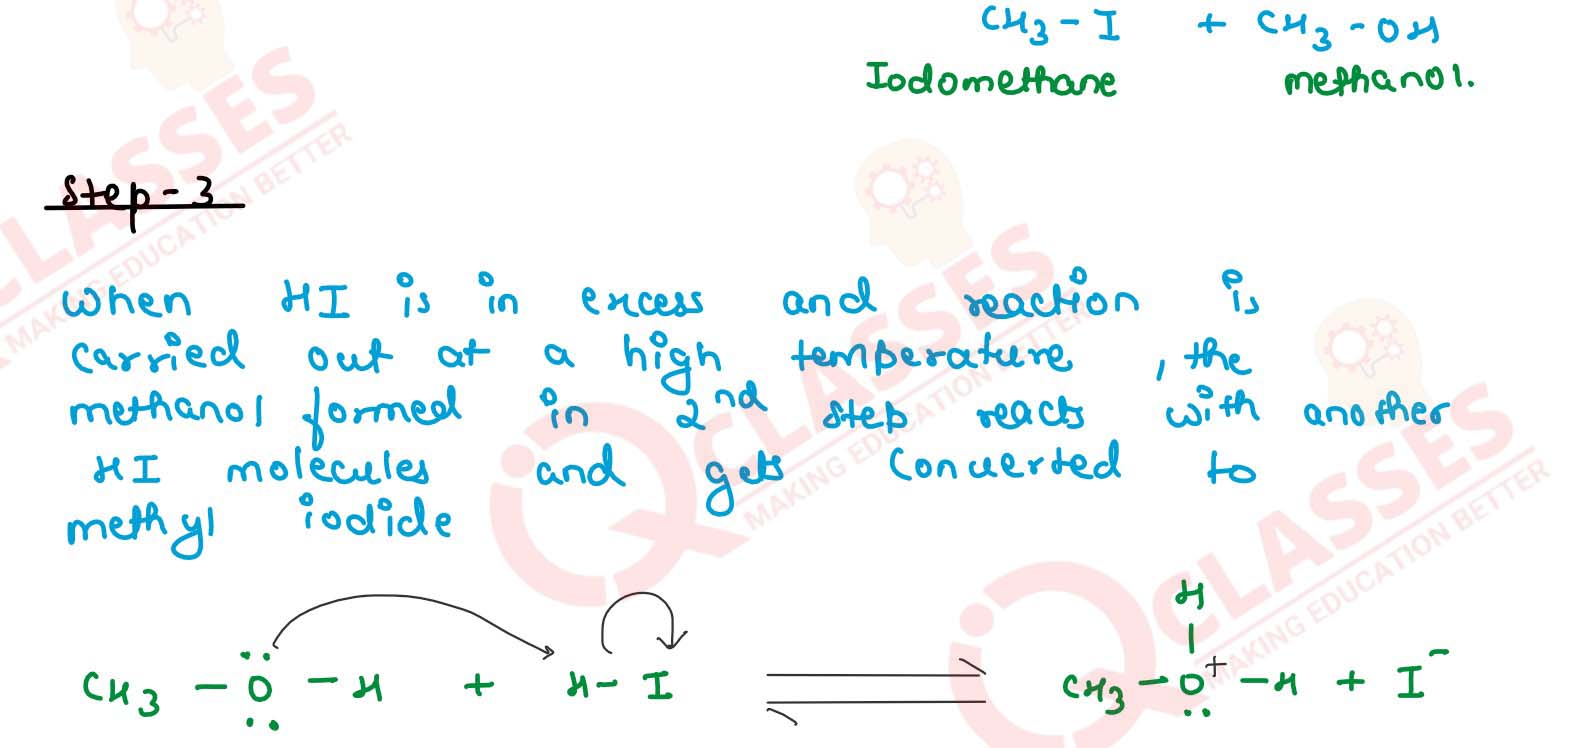 CH3-I + CH3-OH
Iodomethane methanol.
Step-3
When HI is in excess and reaction is
carried out at a high temperature, the
methanol formed in 2nd step reacts with another
HI molecules and gets converted to
methyl iodide
H
CH3-O-H + H-I ⇌ CH3-O+-H + I-
CLASSES
MAKING EDUCATION BETTER
IQ CLASSES
MAKING EDUCATION BETTER
IQ CLASSES
MAKING EDUCATION BETTER